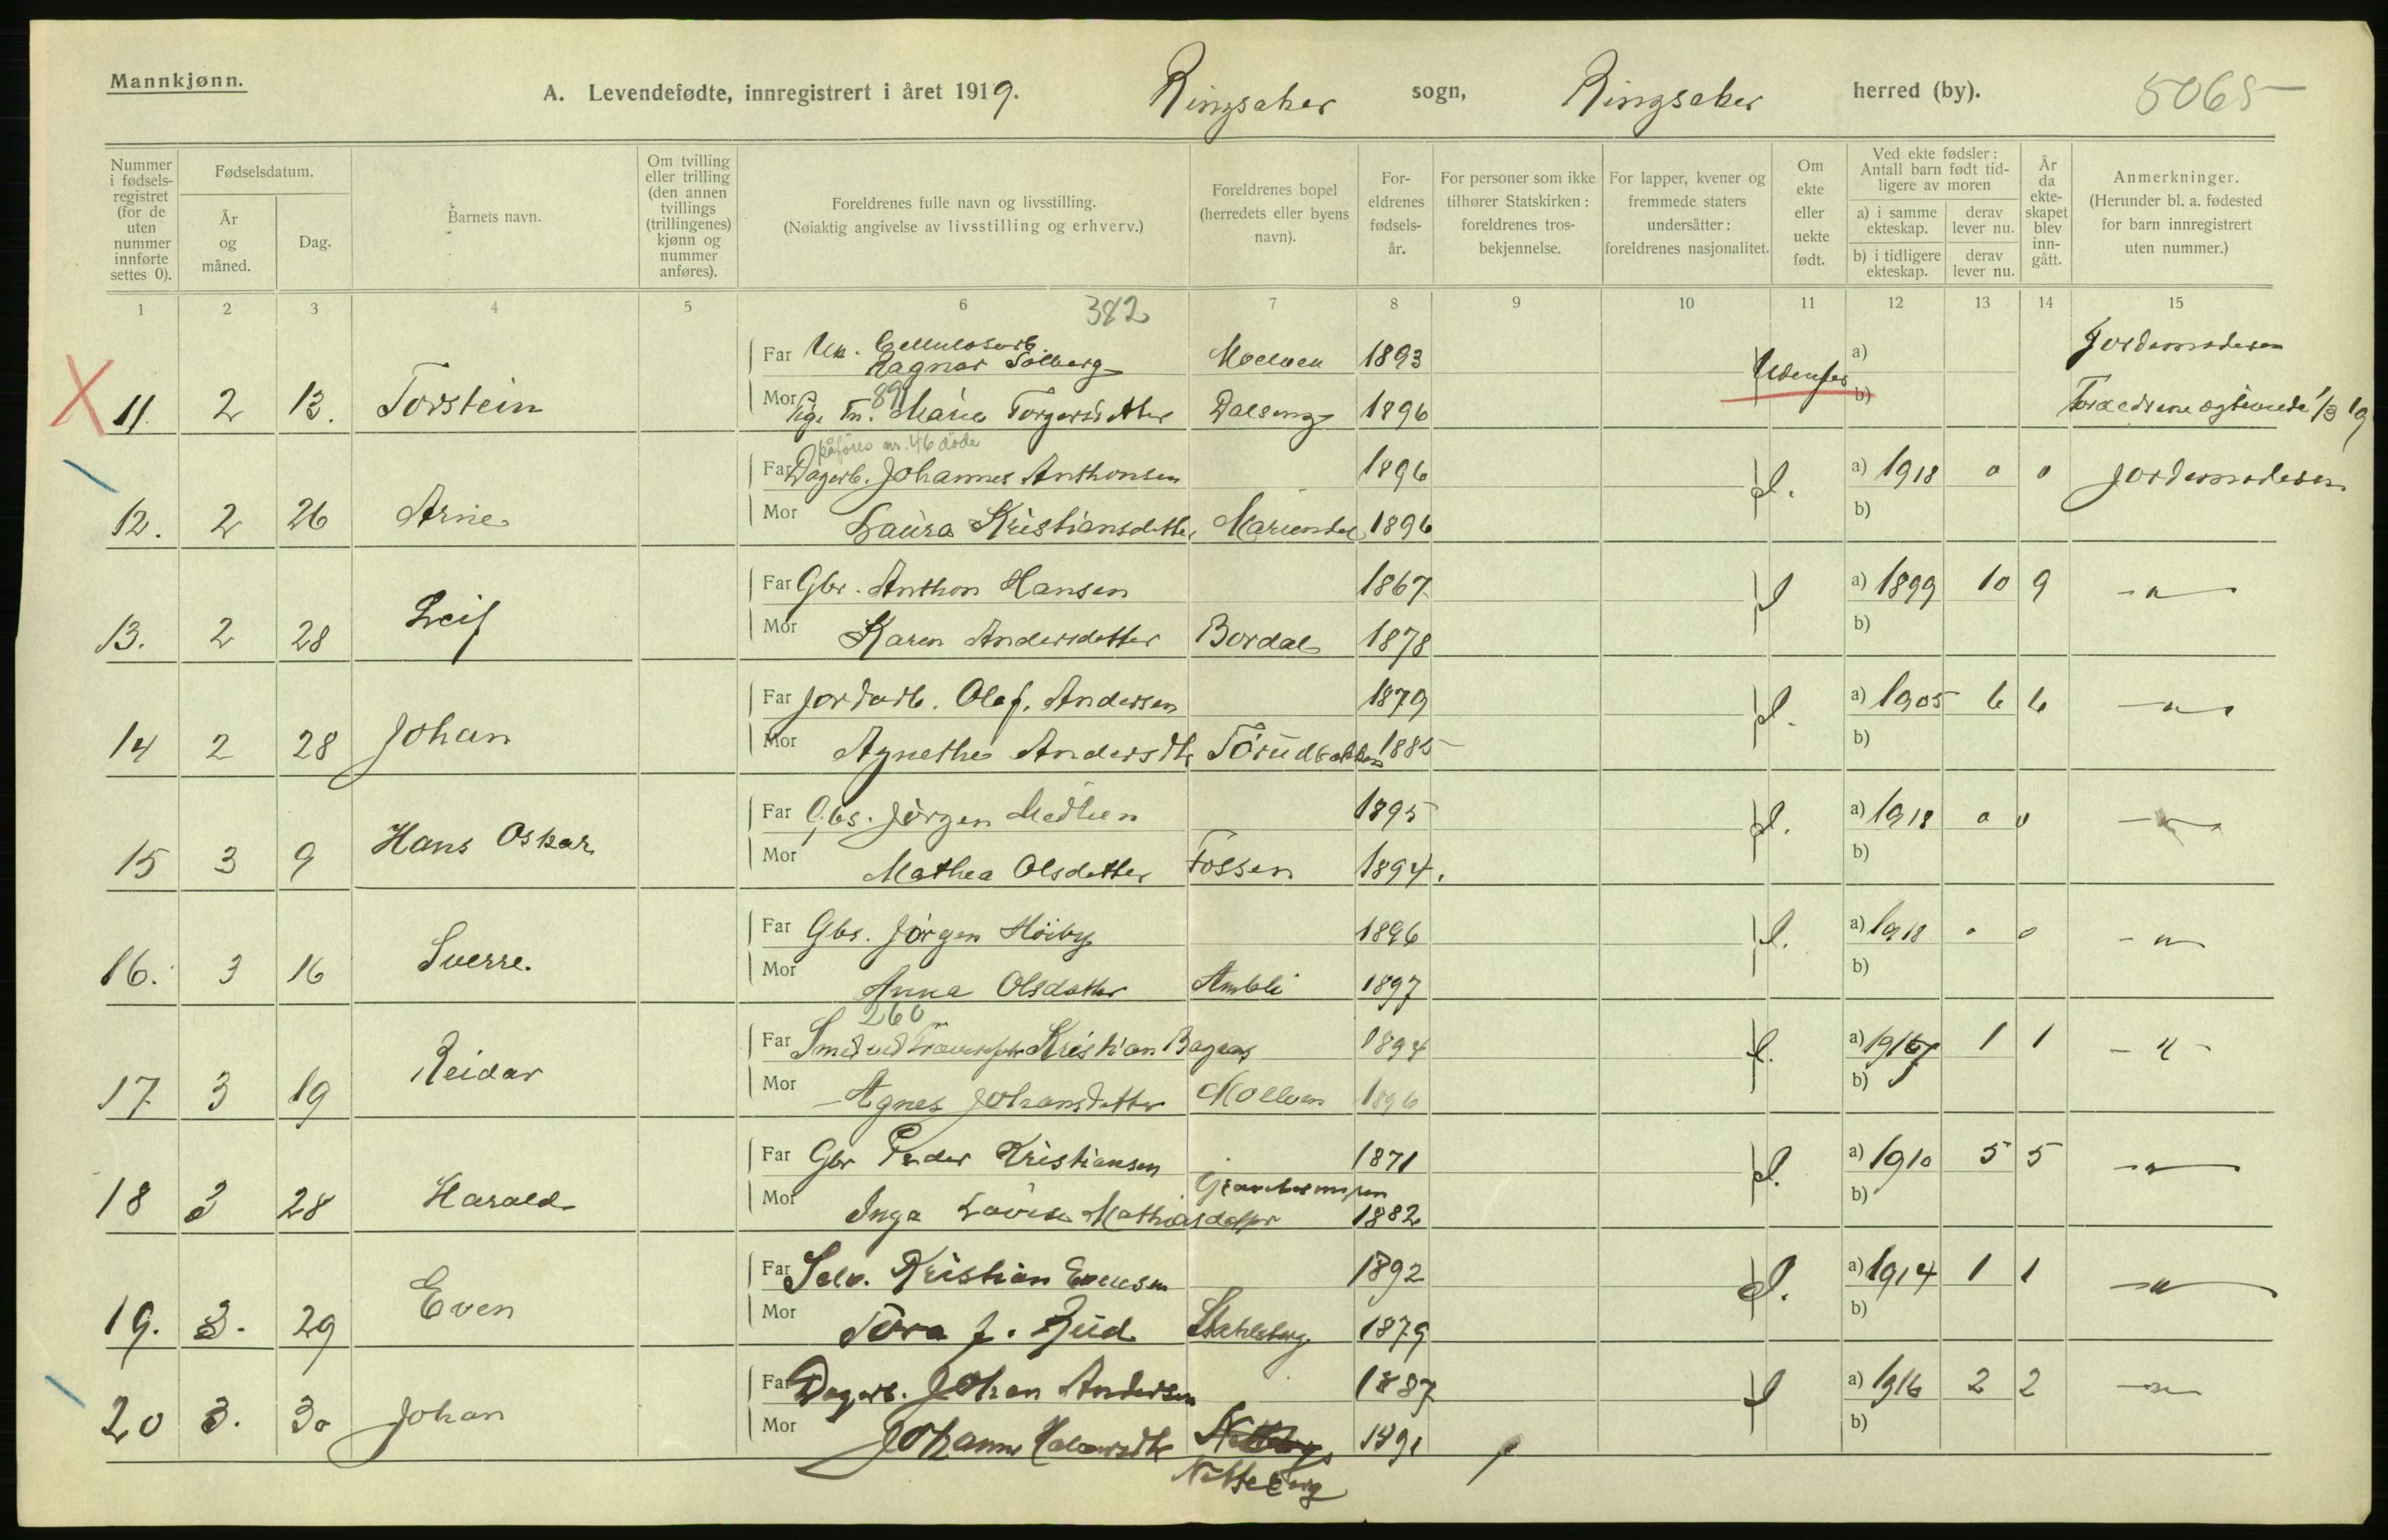 Mannkjønn.
A. Levendefødte, innregistrert i året 1919. Ringsaker sogn, Ringsaker herred (by). 5065
Nummer i fødsels-registret (for de uten nummer innførte settes 0).
Fødselsdatum.
År og måned.
Dag.
Barnets navn.
Om tvilling eller trilling (den annen tvillings (trillingenes) kjønn og nummer anføres).
Foreldrenes fulle navn og livsstilling.
(Nøiaktig angivelse av livsstilling og erhverv.)
Foreldrenes bopel (herredets eller byens navn).
For-eldrenes fødsels-år.
For personer som ikke tilhører Statskirken: foreldrenes tros-bekjennelse.
For lapper, kvener og fremmede staters undersåtter: foreldrenes nasjonalitet.
Om ekte eller uekte født.
Ved ekte fødsler: Antall barn født tid-ligere av moren
a) i samme ekteskap.
derav lever nu.
b) i tidligere ekteskap.
derav lever nu.
År da ekte-skapet blev inn-gått.
Anmerkninger.
(Herunder bl. a. fødested for barn innregistrert uten nummer.)
1 2 3 4 5 6 7 8 9 10 11 12 13 14 15
382
Far Uk. Cellulosearb. Ragnar Solberg Moelven 1893 a) Jordemoderen
891
11. 2 13. Torstein Mor Pige Fn. Marie Torgersdatter Dalseng 1896 b) 1/3 19
påføres nr. 46 døde
Far Dagarb. Johannes Anthonsen 1896 a) 1918 0 0 Jordemoderen
12. 2 26 Arne Mor Laura Kristiansdatter Mariendal 1896 b)
Far Gbr. Anthon Hansen 1867 a) 1899 10 9 -"-
13. 2 28 Leif Mor Karen Andersdatter Bordal 1878 b)
Far Jordarb. Olaf Andersen 1879 a) 1905 6 6 -"-
14 2 28 Johan Mor Agnethe Andersdtr Torudbakken 1885 b)
Far Gbs. Jørgen Medlien 1895 a) 1918 0 0 -"-
15 3 9 Hans Oskar Mor Mathea Olsdatter Fossen 1894. b)
Far Gbs. Jørgen Høiby 1896 a) 1918 0 0 -"-
16. 3 16 Sverre. Mor Anna Olsdatter Ambli 1897 b)
260
Far Smed ved Kristian Bagaas 1894 a) 1 1 -"-
17 3 19 Reidar Mor Agnes Johansdatter Moelven 1896 b)
Far Gbr Peder Kristiansen 1871 a) 1910 5 5 -"-
18 3 28 Harald Mor Inga Lovise Mathiasdatter 1882 b)
Far Selv. Kristian Evensen 1892 a) 1914 1 1 -"-
19. 3. 29 Even Mor Tora J. Rud 1879 b)
Far Dagarb. Johan Andersen 1887 a) 1916 2 2 -"-
20 3. 30 Johan Mor Johanne Halvorsdtr 1891 b)
Netteberg